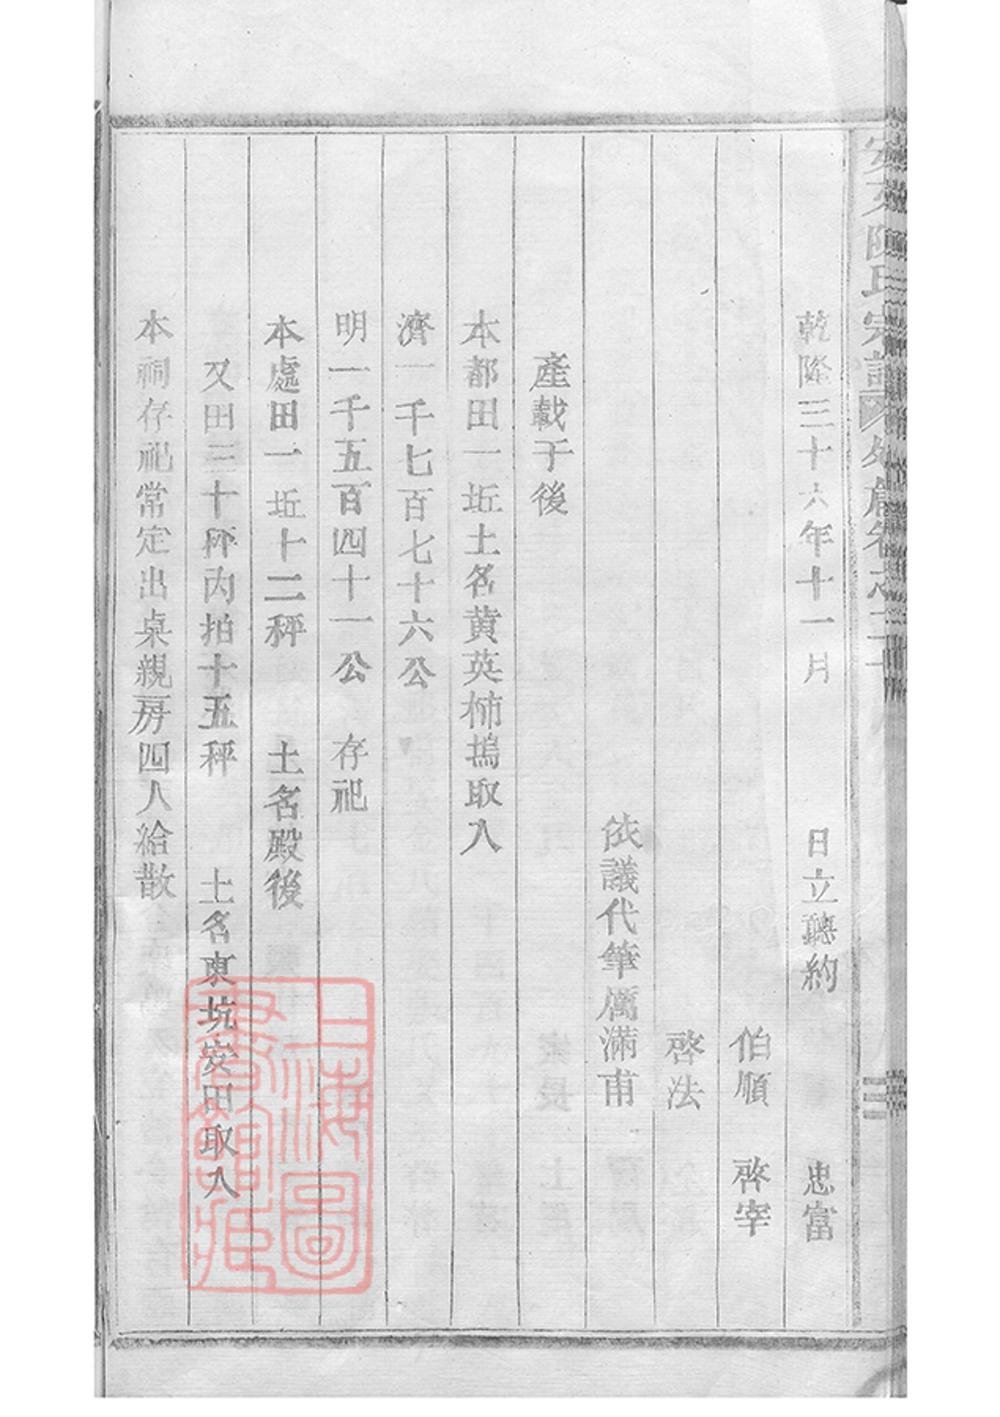 乾隆三十六年十一月　日立聽約　忠富
伯順　啓宰
啓法
依議代筆厲滿甫
產載于後
本都田一坵土名黄英柿塢取入
濟一千七百七十六公
明一千五百四十一公　存祀
本處田一坵十二秤　土名殿後
又田三十秤内拍十五秤　土名東坑安田取入
本祠存祀常定出桌親房四人給散
上海圖書館藏